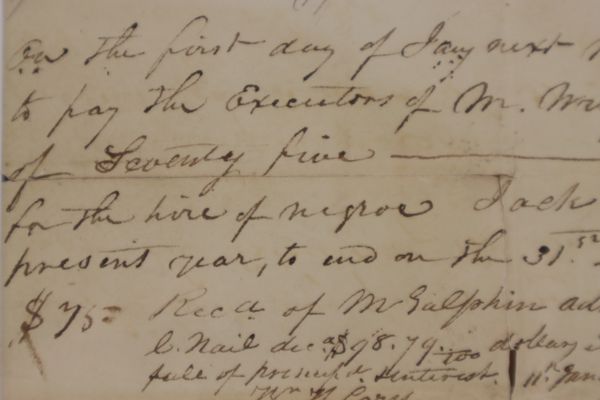 On the first day of Jany next
to pay the Executors of M. Wm
of Seventy five
for the hire of negroe Jack
present year, to end on the 31st
$75 Recd of M Galphin ad
C. Nail decd $98.79/100 dollars
full of present & interest. 11th Jan
Wm H